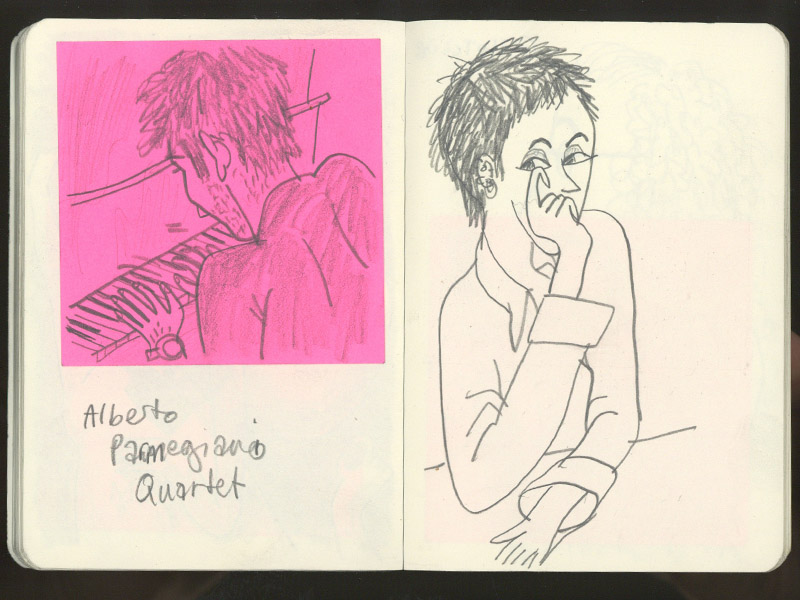 Alberto
Parmegiani
Quartet